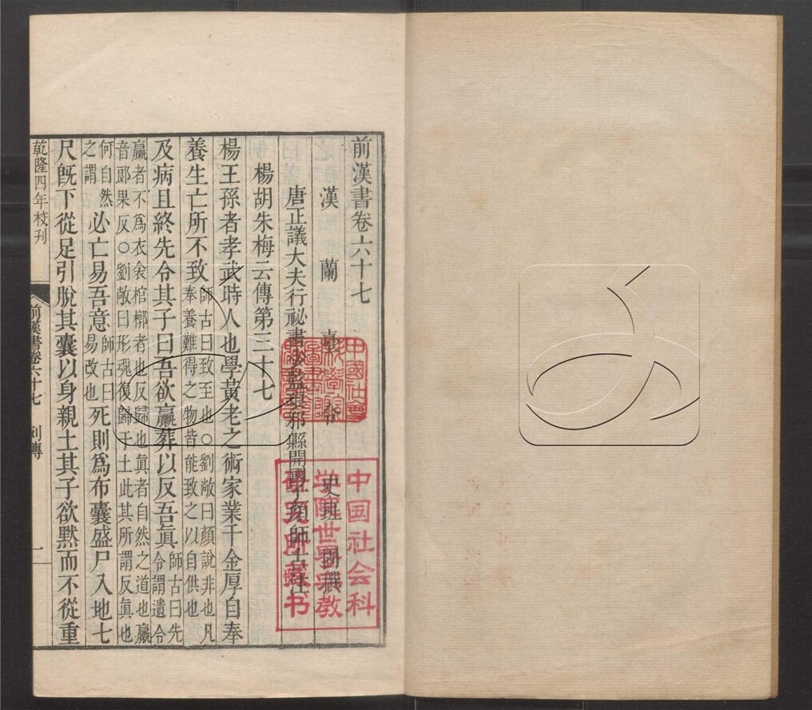 前漢書卷六十七
漢蘭臺令史班固撰
唐正議大夫行祕書少監琅邪縣開國子顏師古注
楊胡朱梅云傳第三十七
楊王孫者孝武時人也學黃老之術家業千金厚自奉
養生亡所不致師古曰致至也○劉敞曰顏說非也凡奉養難得之物皆能致之以自供也
及病且終先令其子曰吾欲臝葬以反吾眞師古曰先令謂遺令
臝者不爲衣衾棺槨者也反歸也眞者自然之道也臝音郎果反○劉敞曰形魂復歸于土此其所謂反眞也
何自然之謂必亡易吾意師古曰易改也死則爲布囊盛尸入地七
尺旣下從足引脫其囊以身親土其子欲默而不從重
乾隆四年校刊
前漢書卷六十七 列傳
一
中國社會科學院圖書館
中国社会科
学院世界宗教
研究所藏书